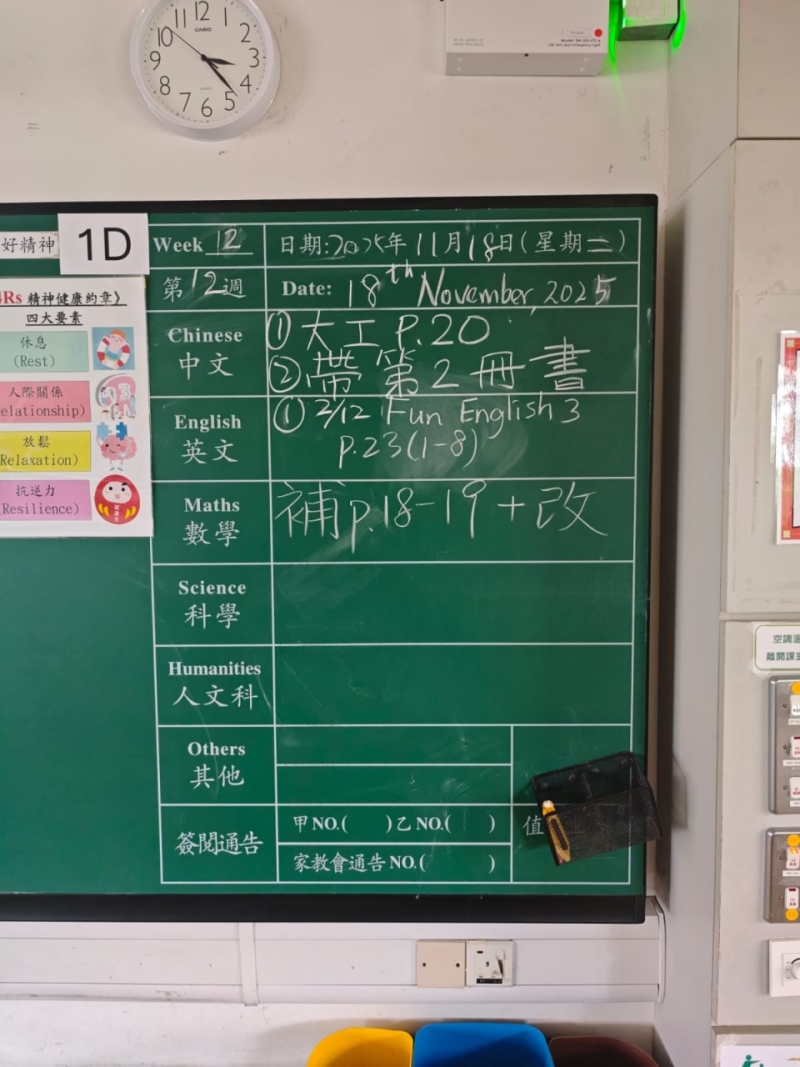 12
11
1
10
2
CASIO
9
3
8
4
QUARTZ
7
5
6
好精神
1D
Week 12
日期:2025年11月18日(星期二)
第12週
Date: 18th November, 2025
4Rs 精神健康約章》
四大要素
休息
(Rest)
人際關係
(Relationship)
放鬆
(Relaxation)
抗逆力
(Resilience)
Chinese
中文
① 大工 P.20
② 帶第2冊書
English
英文
① 2/12 Fun English 3
p.23(1-8)
Maths
數學
補p.18-19+改
Science
科學
Humanities
人文科
Others
其他
簽閱通告
甲NO.( )乙NO.( )
家教會通告NO.( )
值
空調溫
離開課室